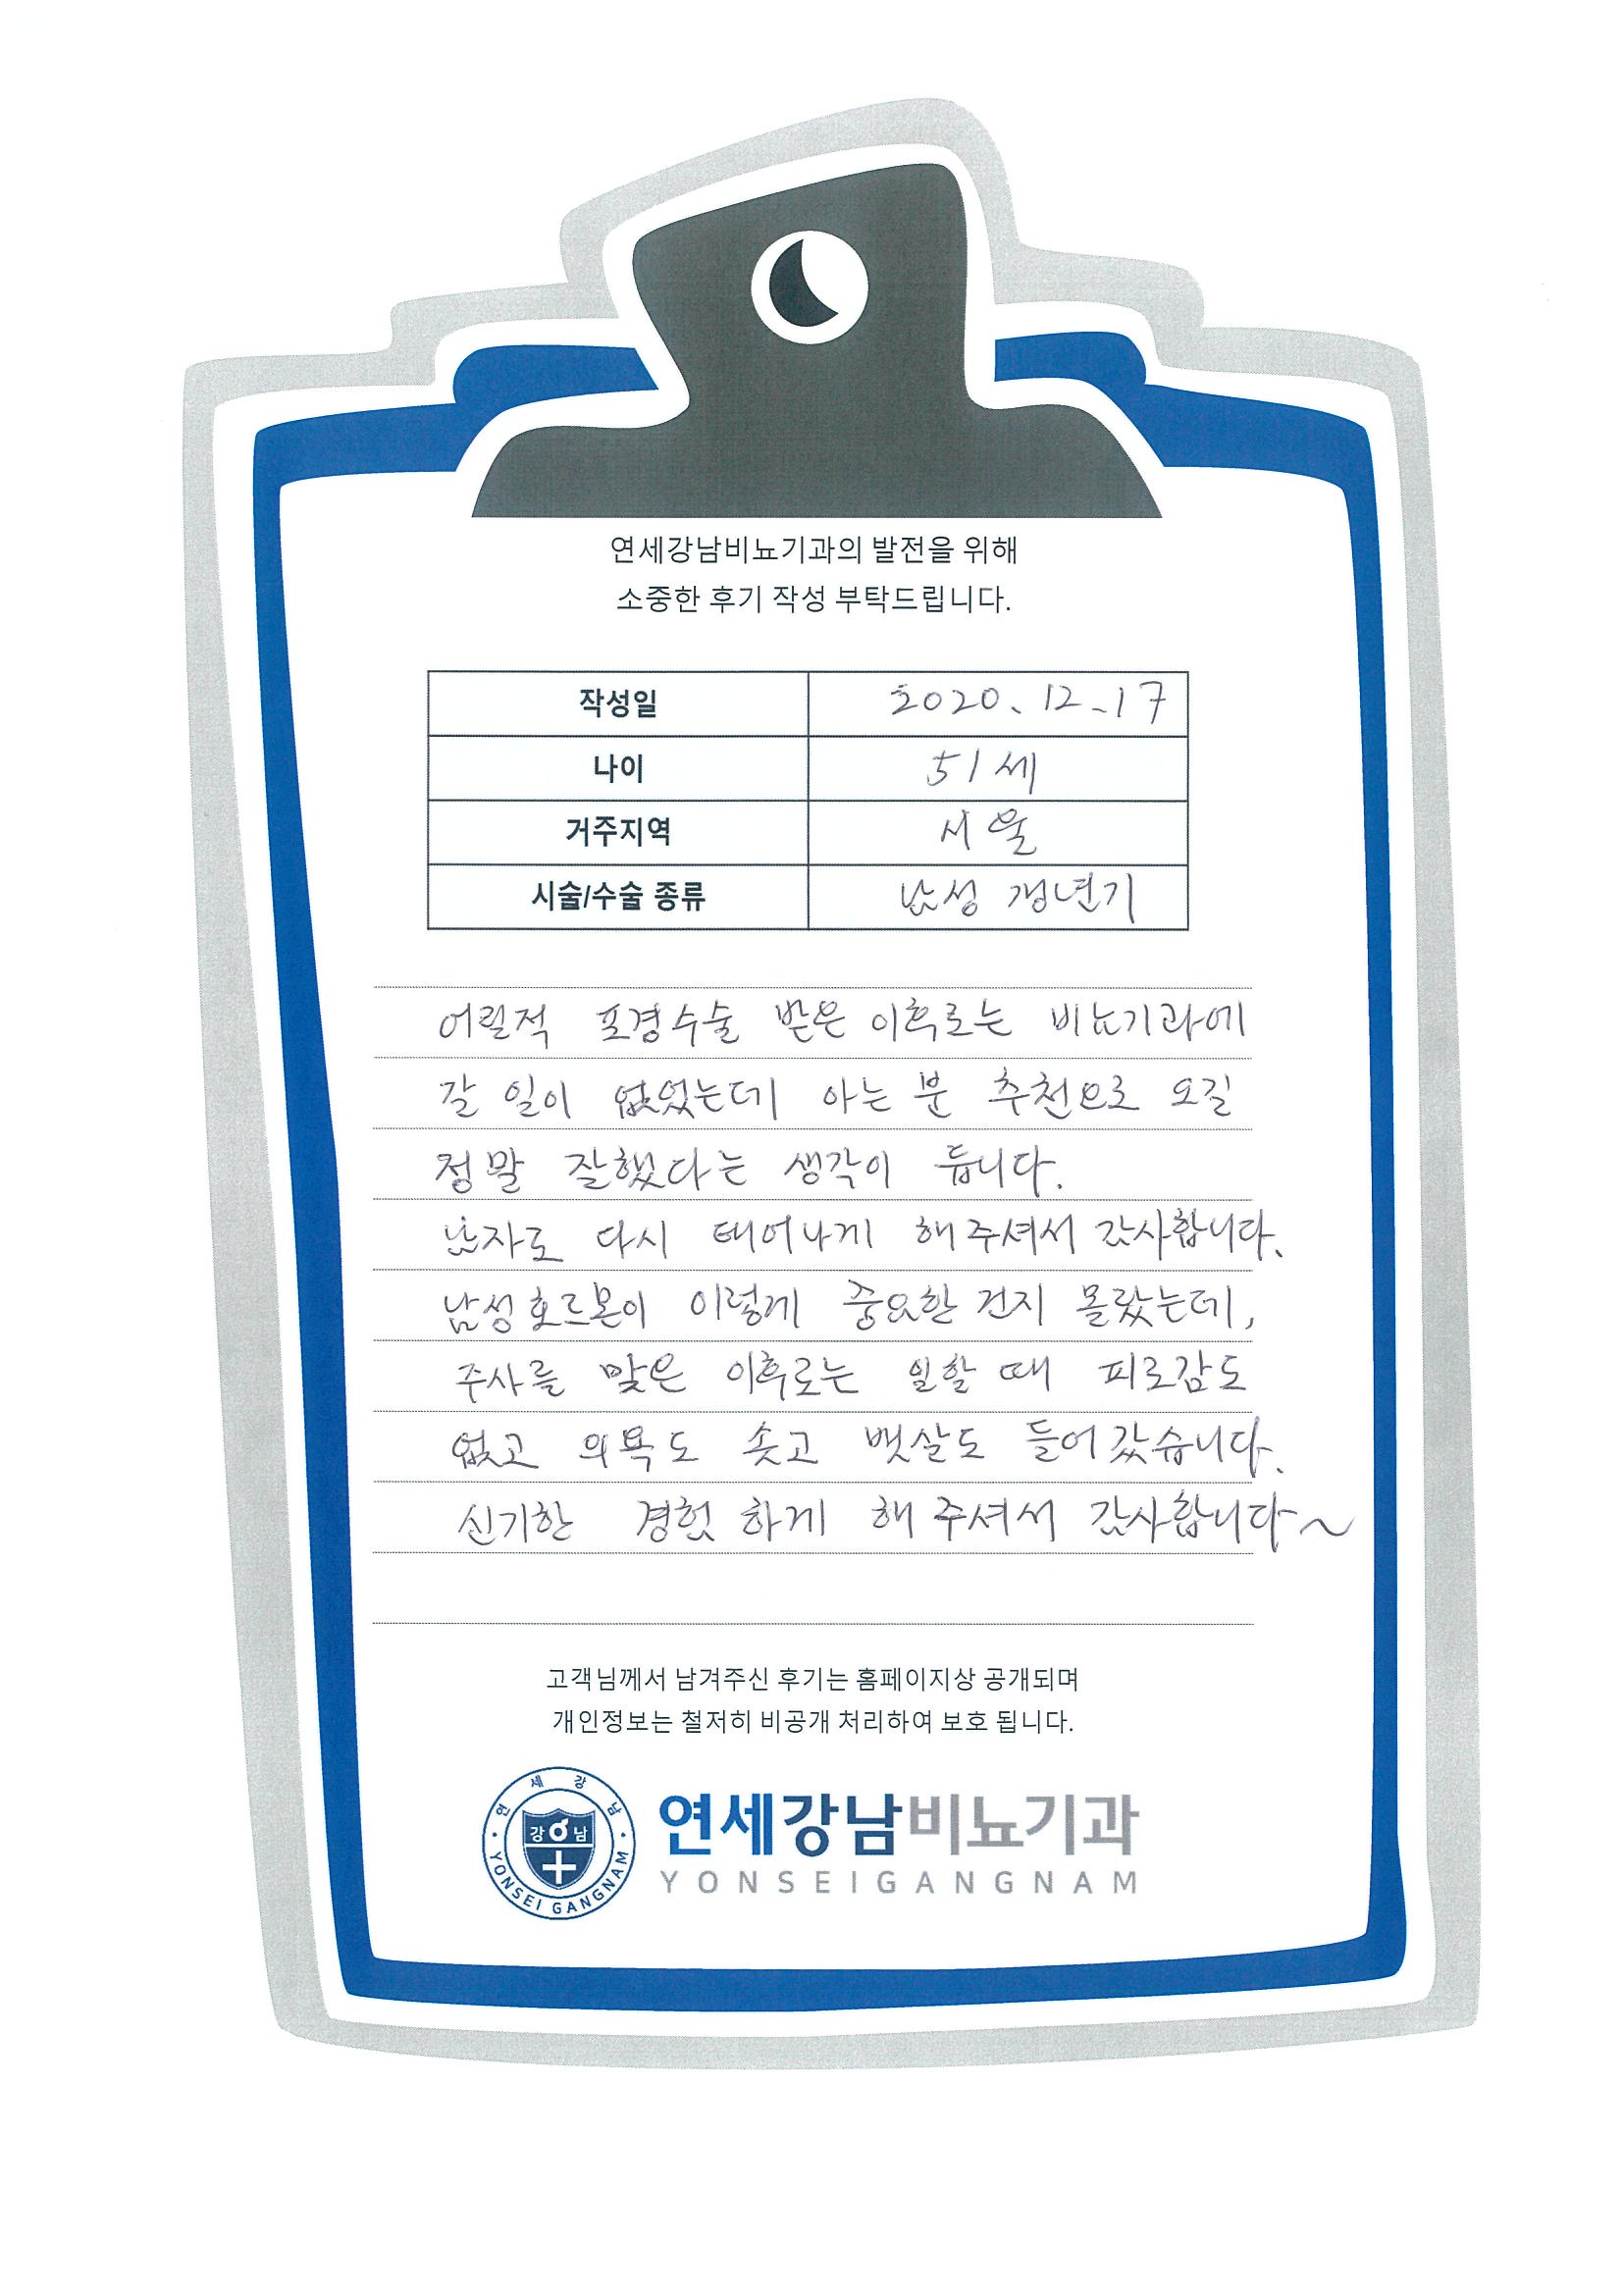 연세강남비뇨기과의 발전을 위해
소중한 후기 작성 부탁드립니다.
작성일 2020. 12. 17
나이 51세
거주지역 서울
시술/수술 종류 남성 갱년기
어릴적 포경수술 받은 이후로는 비뇨기과에
갈 일이 없었는데 아는 분 추천으로 오길
정말 잘했다는 생각이 듭니다.
남자로 다시 태어나게 해주셔서 감사합니다.
남성호르몬이 이렇게 중요한 건지 몰랐는데,
주사를 맞은 이후로는 일할 때 피로감도
없고 의욕도 솟고 뱃살도 들어갔습니다.
신기한 경험 하게 해주셔서 감사합니다~
고객님께서 남겨주신 후기는 홈페이지상 공개되며
개인정보는 철저히 비공개 처리하여 보호 됩니다.
연세강남
강남
YONSEI GANGNAM
연세강남비뇨기과
YONSEIGANGNAM